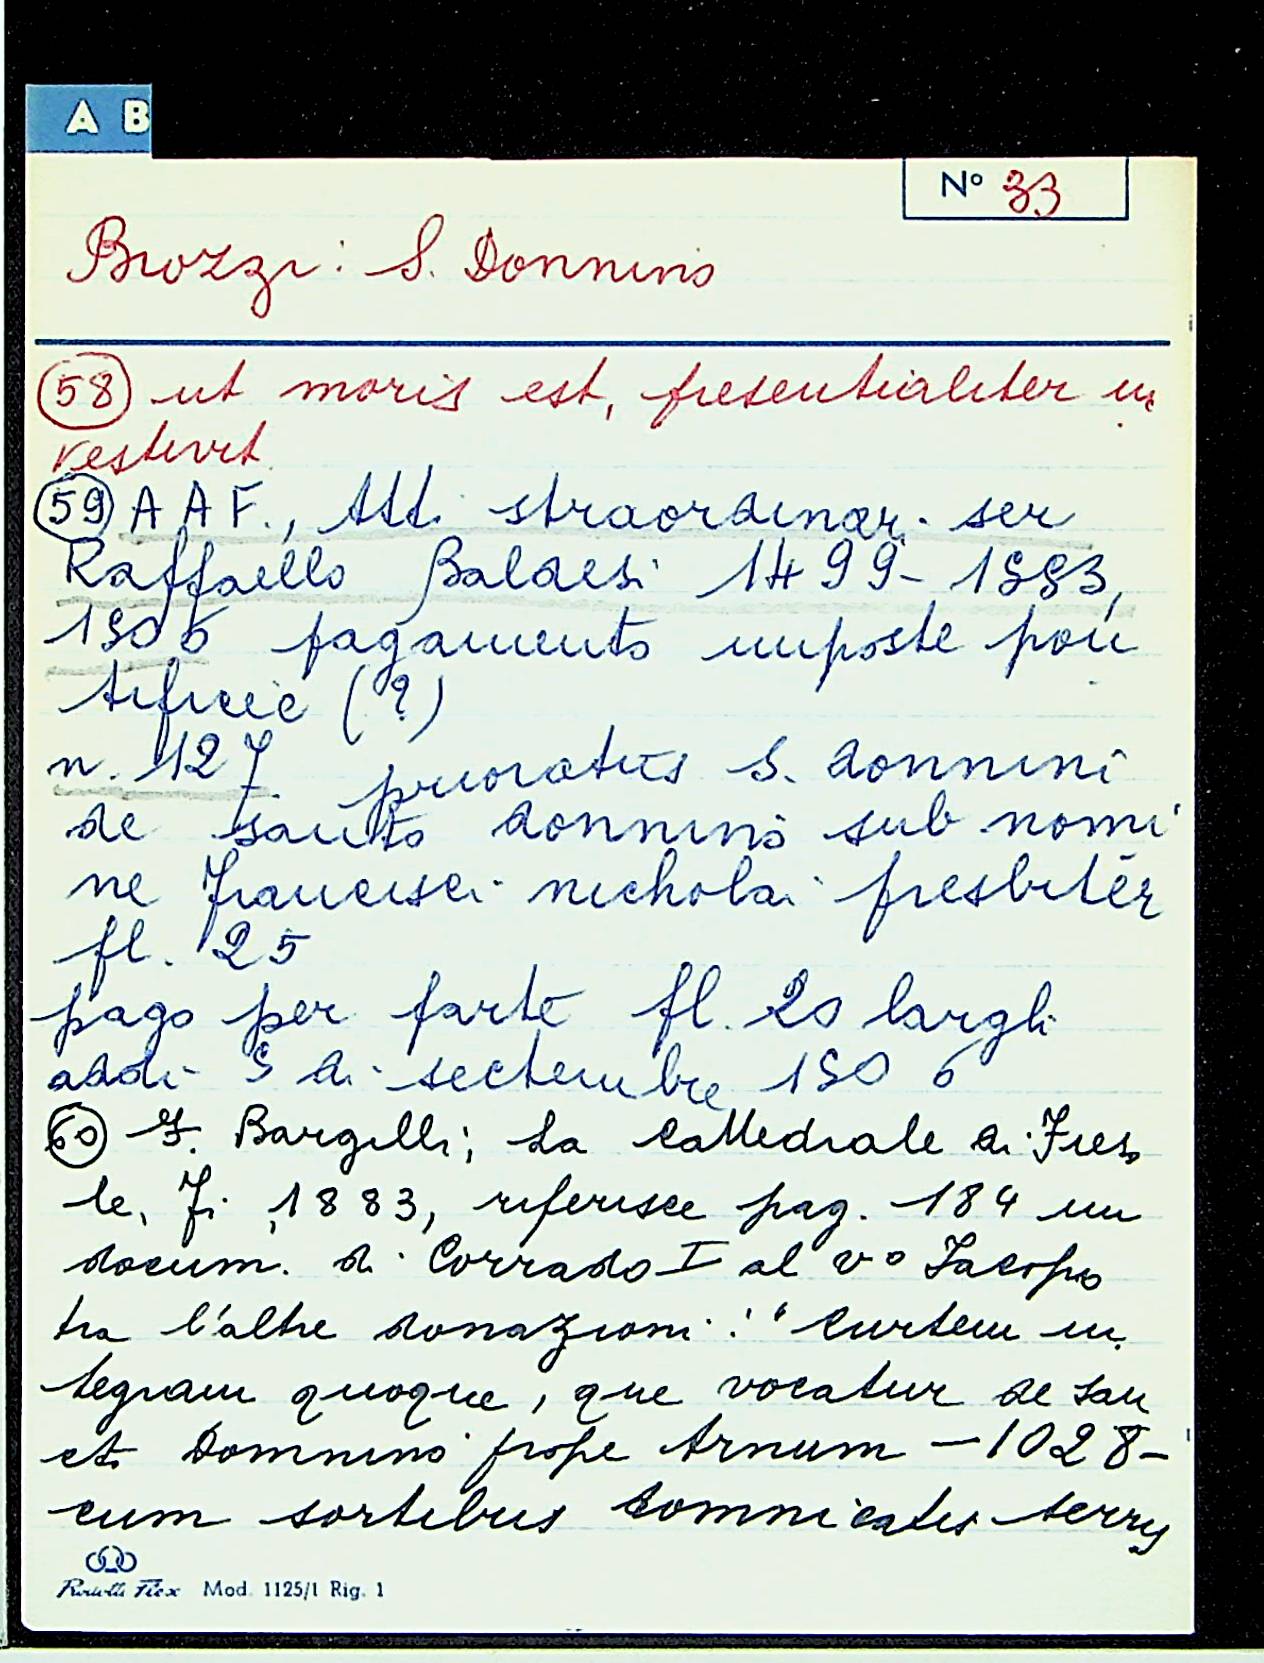 A B
N° 33
Brozzi: S. Donnino
58 ut moris est, presentialiter in
vestivit
59 A A F., Atti straordinar. ser
Raffaello Baldesi 1499-1553,
1506 pagamento imposte pon
tificie (?)
n. 127. prioratus S. donnini
de Sancto donnino sub nomi
ne Francisci nicholai presbiter
fl. 25
pago per parte fl. 20 largli
addi 5 di sectembre 1506
60 F. Bargilli; La Cattedrale di Fieso
le, Fi, 1883, riferisce pag. 184 un
docum. di Corrado I al v° Jacopo
tra l'altre donazioni: "Curtem in
tegram quoque, que vocatur de San
cti Domnino prope Arnum -1028-
cum sortibus domnicatis terris
Mod. 1125/1 Rig. 1